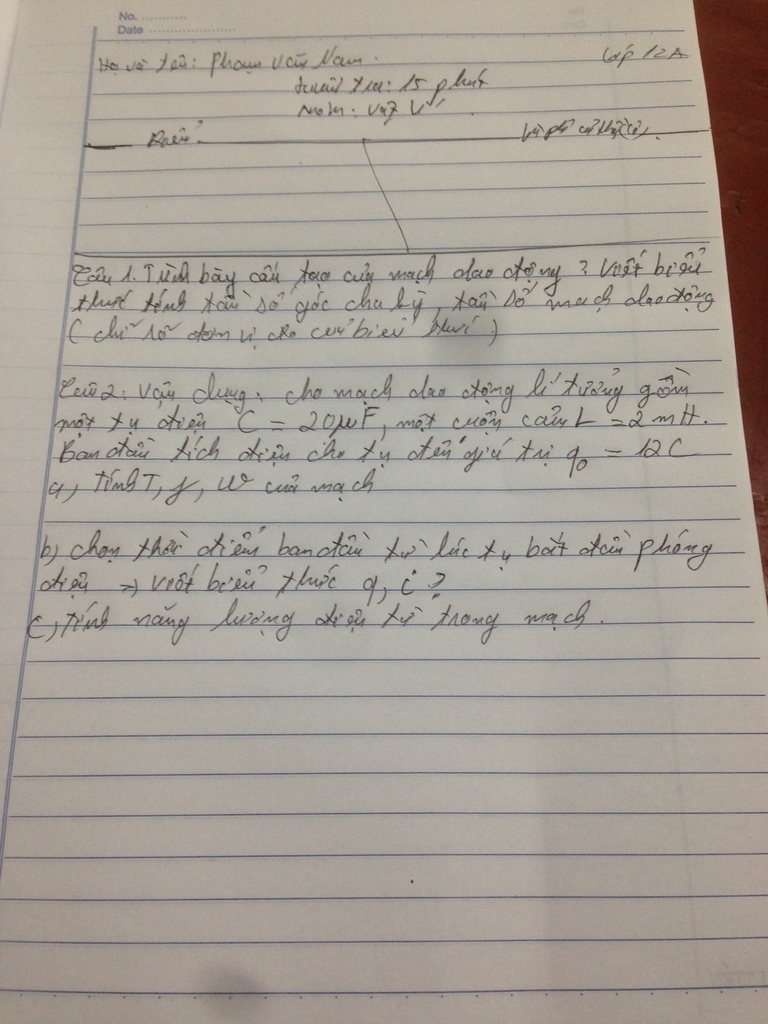 No. ............
Date ........................
Họ và tên: Phạm Văn Nam. Lớp 12A
Kiểm tra: 15 phút
Môn: Vật lí
Điểm. Lời phê của thầy (cô).
Câu 1. Trình bày cấu tạo của mạch dao động? Viết biểu
thức tính tần số góc chu kỳ, tần số mạch dao động
( chỉ số đơn vị đo của biểu thức )
Câu 2: Vận dụng: cho mạch dao động lí tưởng gồm
một tụ điện C = 20µF, một cuộn cảm L = 2 mH.
Ban đầu tích điện cho tụ đến giá trị q₀ = 12 C
a, Tính T, f, W của mạch
b) chọn thời điểm ban đầu từ lúc tụ bắt đầu phóng
điện => viết biểu thức q, i ?
c, tính năng lượng điện từ trong mạch.